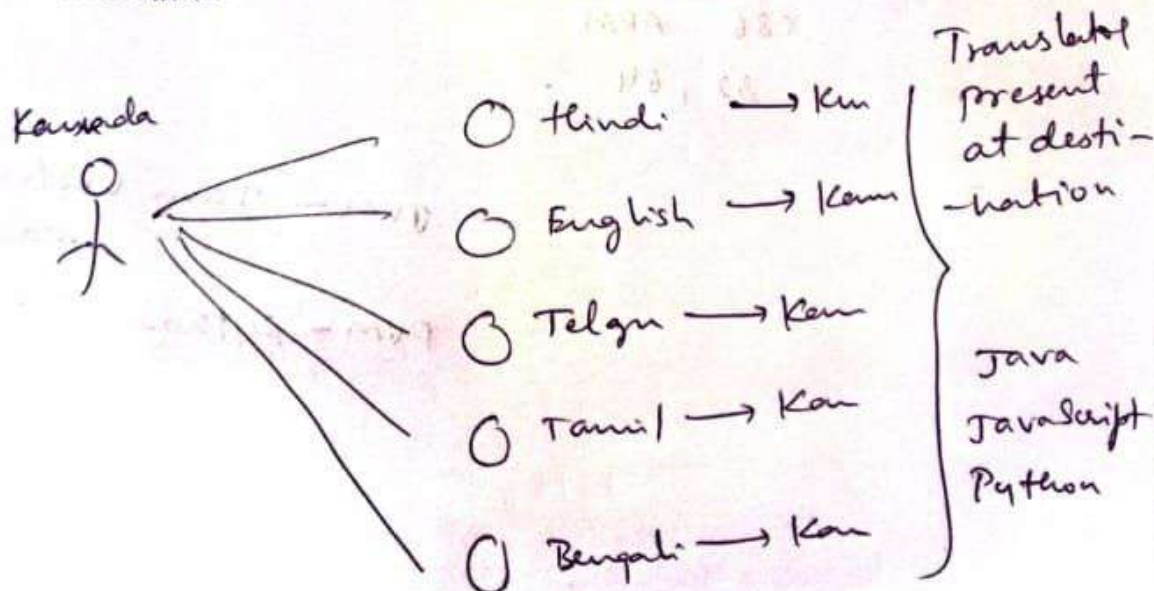 Kannada
Hindi → Kan
English → Kann
Telgu → Kan
Tamil → Kan
Bengali → Kan
Translator
present
at desti-
-nation
Java
JavaScript
Python